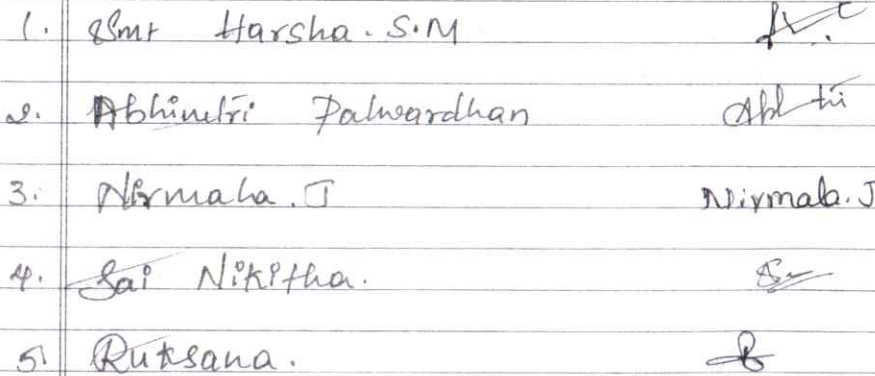 1. Smt Harsha. S.M
2. Abhinetri Palwardhan
3. Nirmala. J Nirmala. J
4. Sai Nikitha.
5. Ruksana.